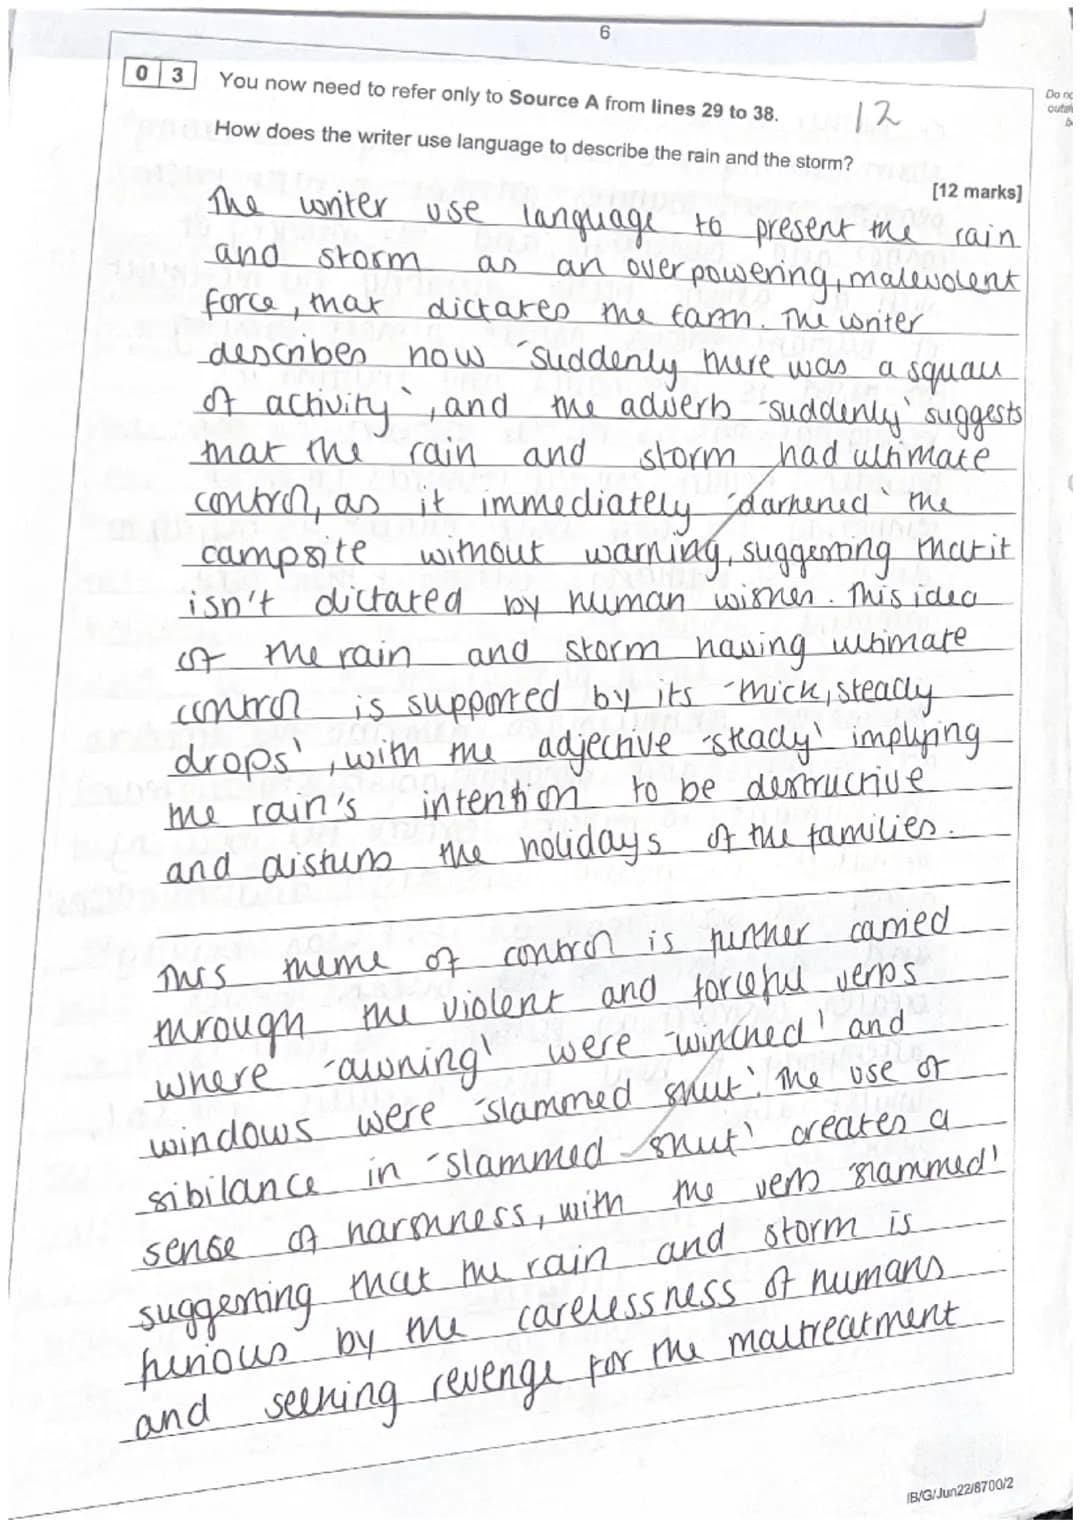 6
0 3 You now need to refer only to Source A from lines 29 to 38.
12
How does the writer use language to describe the rain and the storm?
[12 marks]
Do no
outsi
b
The writer use language to present the rain
and storm as an overpowering, malevolent
force, that dictates the Earth. The writer
describes how 'suddenly there was a squall
of activity', and the adverb 'suddenly' suggests
that the rain and storm had ultimate
control, as it immediately 'darkened' the
campsite without warning, suggesting that it
isn't dictated by human wishes. This idea
of the rain and storm having ultimate
control is supported by its 'thick, steady
drops', with the adjective 'steady' implying
the rain's intention to be destructive
and disturb the holidays of the families.
This theme of control is further carried
through the violent and forceful verbs
where 'awning' were 'winched' and
windows were 'slammed shut'. The use of
sibilance in 'slammed shut' creates a
sense of harshness, with the verb 'slammed'
suggesting that the rain and storm is
furious by the carelessness of humans
and seeking revenge for the maltreatment
IB/G/Jun22/8700/2